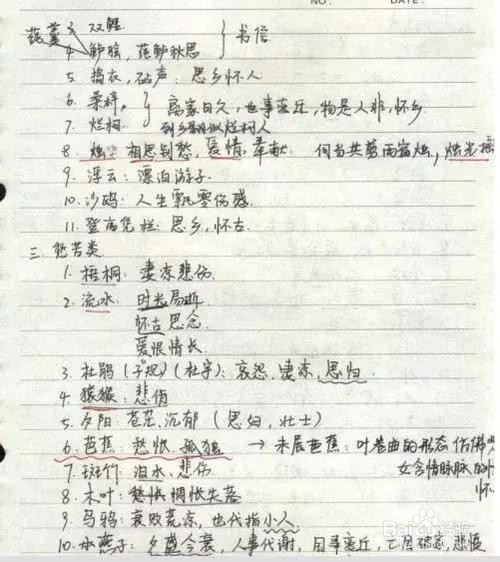 NO. DATE.
莼羹 3. 双鲤
4. 鲈脍, 莼鲈秋思 } 书信
5. 捣衣, 砧声: 思乡怀人
6. 桑梓,
7. 烂柯 } 离家日久, 世事变迁, 物是人非, 怀乡
到乡翻似烂柯人
8. 烛: 相思别愁, 爱情, 奉献. 何当共剪西窗烛, 烛光摇
9. 浮云: 漂泊游子.
10. 沙鸥: 人生飘零伤感.
11. 登高凭栏: 思乡, 怀古.
三. 愁苦类
1. 梧桐: 凄凉悲伤.
2. 流水: 时光易逝
怀古思念.
爱恨情长.
3. 杜鹃(子规)(杜宇): 哀怨, 凄凉, 思归.
4. 猿猴: 悲伤
5. 夕阳: 苍茫, 沉郁 (思妇, 壮士)
6. 芭蕉: 愁怅, 孤独 → 未展芭蕉: 叶卷曲的形态仿佛少
女含情脉脉的
怀
7. 斑竹: 泪水, 悲伤.
8. 木叶: 愁怅惆怅失落
9. 乌鸦: 衰败荒凉, 也代指小人.
10. 燕子: 夕盛今衰, 人事代谢, 国事变迁, 亡国破家, 悲愤
Bai